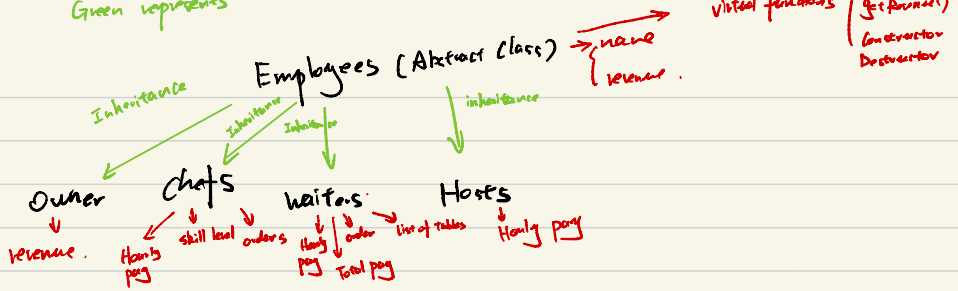 Green represents
virtual functions
getRevenue()
Constructor
Destructor
Employees (Abstract Class)
name
revenue.
Inheritance
Inheritance
Inheritance
inheritance
Owner
Chefs
Waiters
Hosts
revenue.
Hourly pay
skill level
orders
Hourly pay
Total pay
order
list of tables
Hourly pay